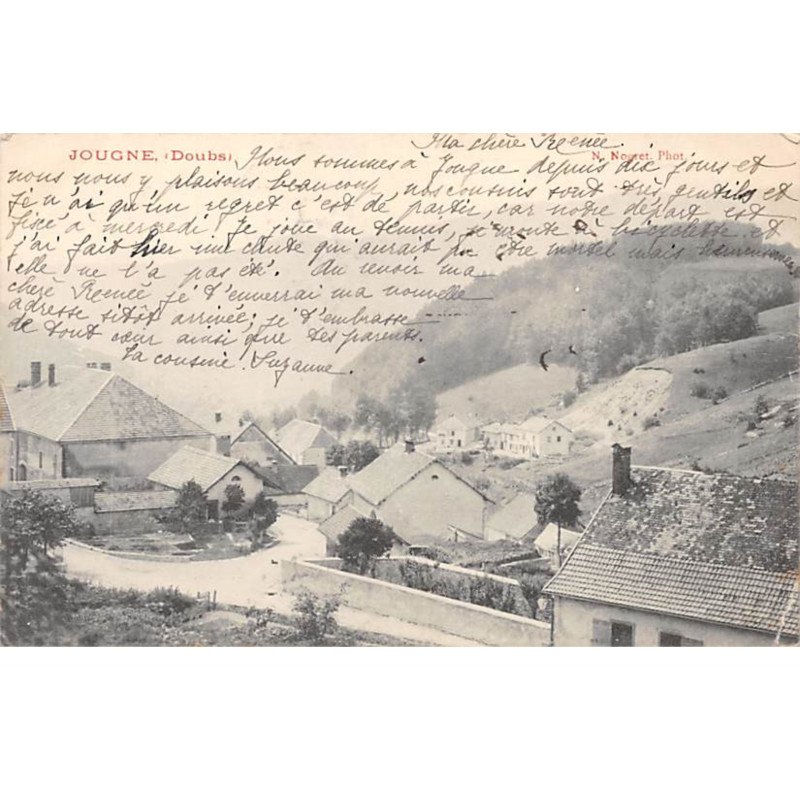 Ma chère Renée
JOUGNE, (Doubs) N. Nogret. Phot.
Nous sommes à Jougne depuis dix jours et
nous nous y plaisons beaucoup, nos cousins sont très gentils et
je n'ai qu'un regret c'est de partir, car notre départ est
fixé à mercredi. Je joue au tennis, je monte à bicyclette et
j'ai fait hier une chute qui aurait pu être mortel mais heureusement
elle ne l'a pas été. Au revoir ma
chère Renée je t'enverrai ma nouvelle
adresse sitôt arrivée; je t'embrasse
de tout cœur ainsi que tes parents.
ta cousine Suzanne